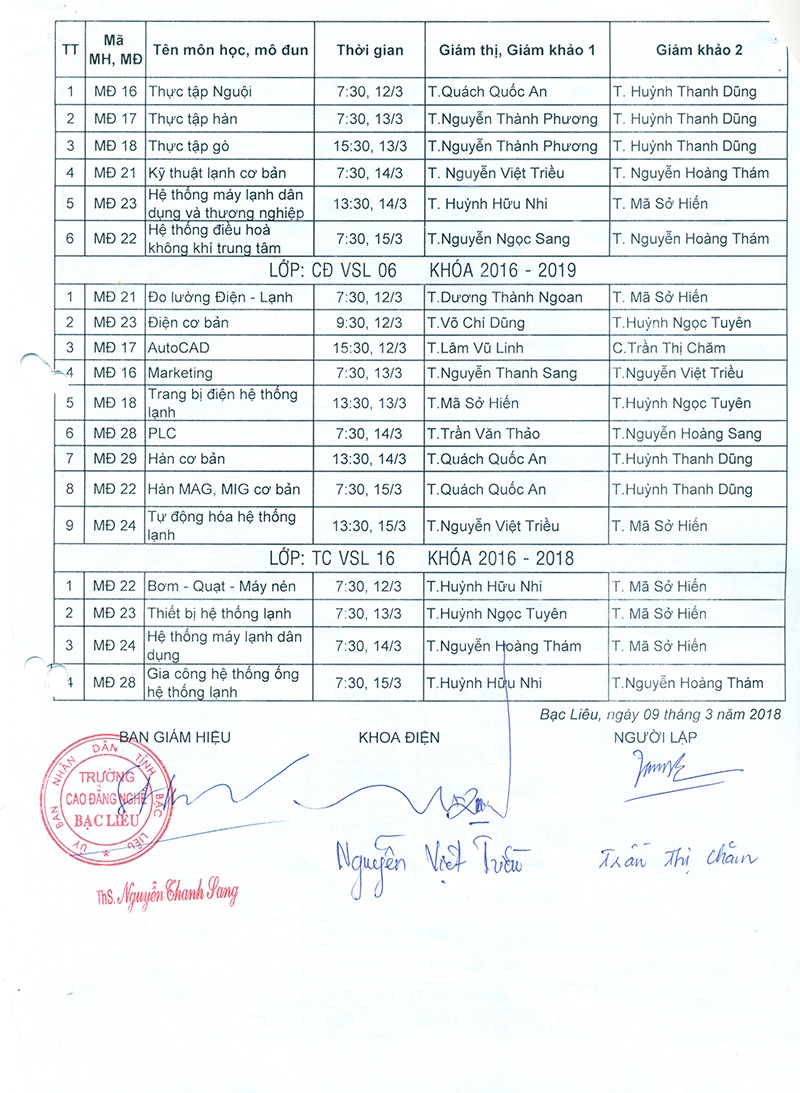 TT Mã MH, MĐ Tên môn học, mô đun Thời gian Giám thị, Giám khảo 1 Giám khảo 2
1 MĐ 16 Thực tập Nguội 7:30, 12/3 T.Quách Quốc An T. Huỳnh Thanh Dũng
2 MĐ 17 Thực tập hàn 7:30, 13/3 T.Nguyễn Thành Phương T. Huỳnh Thanh Dũng
3 MĐ 18 Thực tập gò 15:30, 13/3 T.Nguyễn Thành Phương T. Huỳnh Thanh Dũng
4 MĐ 21 Kỹ thuật lạnh cơ bản 7:30, 14/3 T. Nguyễn Việt Triều T. Nguyễn Hoàng Thám
5 MĐ 23 Hệ thống máy lạnh dân dụng và thương nghiệp 13:30, 14/3 T. Huỳnh Hữu Nhi T. Mã Sở Hiến
6 MĐ 22 Hệ thống điều hoà không khí trung tâm 7:30, 15/3 T.Nguyễn Ngọc Sang T. Nguyễn Hoàng Thám
LỚP: CĐ VSL 06 KHÓA 2016 - 2019
1 MĐ 21 Đo lường Điện - Lạnh 7:30, 12/3 T.Dương Thành Ngoan T. Mã Sở Hiến
2 MĐ 23 Điện cơ bản 9:30, 12/3 T.Võ Chí Dũng T.Huỳnh Ngọc Tuyên
3 MĐ 17 AutoCAD 15:30, 12/3 T.Lâm Vũ Linh C.Trần Thị Chăm
4 MĐ 16 Marketing 7:30, 13/3 T.Nguyễn Thanh Sang T.Nguyễn Việt Triều
5 MĐ 18 Trang bị điện hệ thống lạnh 13:30, 13/3 T.Mã Sở Hiến T.Huỳnh Ngọc Tuyên
6 MĐ 28 PLC 7:30, 14/3 T.Trần Văn Thảo T.Nguyễn Hoàng Sang
7 MĐ 29 Hàn cơ bản 13:30, 14/3 T.Quách Quốc An T.Huỳnh Thanh Dũng
8 MĐ 22 Hàn MAG, MIG cơ bản 7:30, 15/3 T.Quách Quốc An T.Huỳnh Thanh Dũng
9 MĐ 24 Tự động hóa hệ thống lạnh 13:30, 15/3 T.Nguyễn Việt Triều T. Mã Sở Hiến
LỚP: TC VSL 16 KHÓA 2016 - 2018
1 MĐ 22 Bơm - Quạt - Máy nén 7:30, 12/3 T.Huỳnh Hữu Nhi T. Mã Sở Hiến
2 MĐ 23 Thiết bị hệ thống lạnh 7:30, 13/3 T.Huỳnh Ngọc Tuyên T. Mã Sở Hiến
3 MĐ 24 Hệ thống máy lạnh dân dụng 7:30, 14/3 T.Nguyễn Hoàng Thám T. Mã Sở Hiến
4 MĐ 28 Gia công hệ thống ống hệ thống lạnh 7:30, 15/3 T.Huỳnh Hữu Nhi T.Nguyễn Hoàng Thám
Bạc Liêu, ngày 09 tháng 3 năm 2018
BAN GIÁM HIỆU KHOA ĐIỆN NGƯỜI LẬP
ỦY BAN NHÂN DÂN TỈNH BẠC LIÊU
TRƯỜNG
CAO ĐẲNG NGHỀ
BẠC LIÊU
Nguyễn Việt Triều Trần Thị Chăm
ThS. Nguyễn Thanh Sang